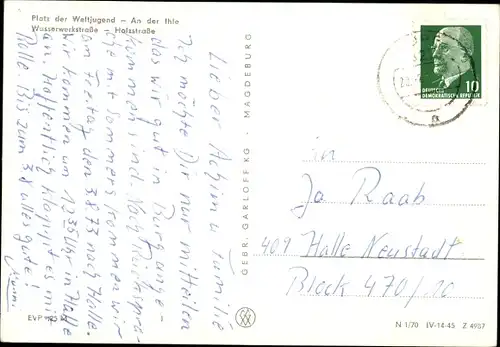 Platz der Weltjugend – An der Ihle
Wasserwerkstraße – Holzstraße
Lieber Achim u. Familie
Ich möchte Dir nur mitteilen
das wir gut in Burg ange-
kommen sind. Nach Rückspra-
che mit Sommers kommen wir
am Freitag den 3.8.73 nach Halle.
Wir kommen um 13 35 Uhr in Halle
an. Hoffentlich klappt es mit
Rolle. Bis zum 3.8 alles gute!
GEBR. GARLOFF KG · MAGDEBURG
DEUTSCHE
DEMOKRATISCHE REPUBLIK
10
Ja Raab
409 Halle Neustadt
Block 470/10
EVP
N 1/70 IV-14-45 Z 4937